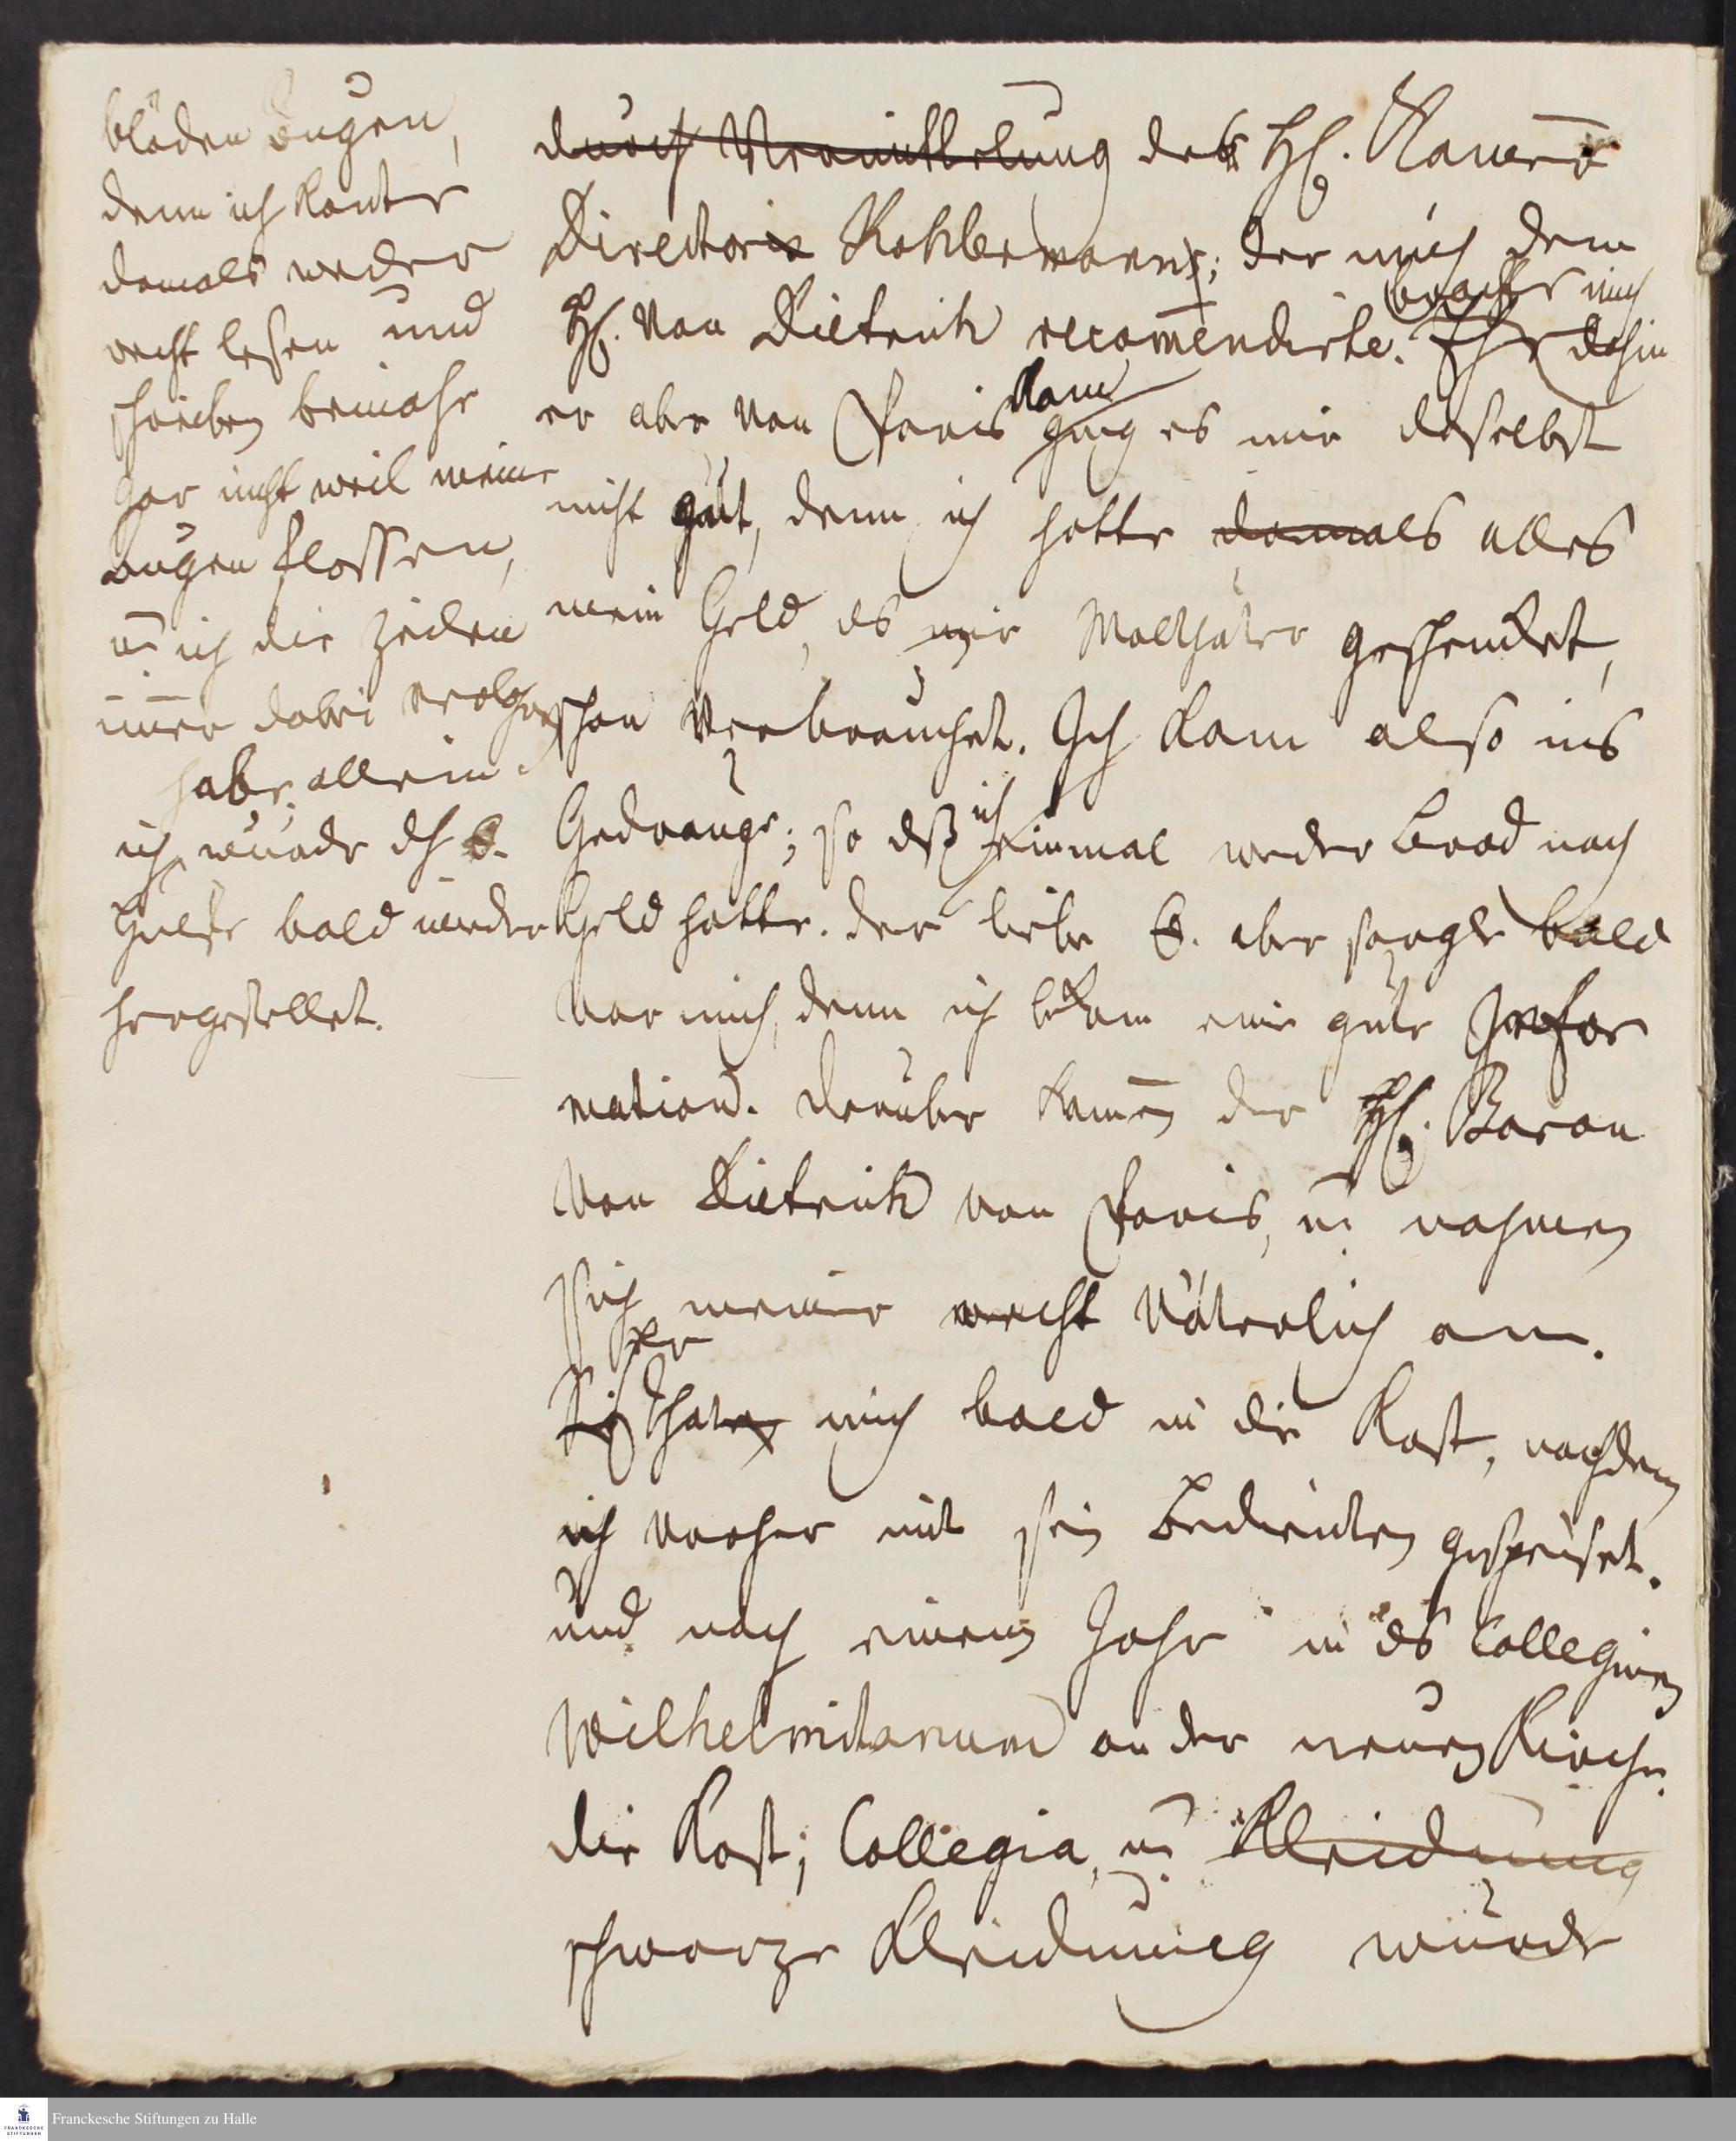 blöden Augen,
denn ich konte
damals weder
recht lesen und
schreiben beinahe
gar nicht weil meine
Augen flossen,
u. ich die Zeilen
imer dabei
habe. allein
ich wurde dh G.
Hülfe bald wieder
hergestellet.
durch Vermittelung des H. Kamer
Directoris Kohlermanns; der mich dem
brachte mich
H. von Dietrich recomendirte. Ehe dahin
kam
er aber von Paris ging es mir daselbst
nicht gut, denn ich hatte damals alles
mein Geld, ds mir Wolthäter geschenket,
schon verbrauchet. Ich kam also ins
ich
Gedrange; so dß einmal weder Brod noch
Geld hatte. der liebe G. aber sorgte bald
vor mich, denn ich bekam eine gute Infor
mation. darüber kamen der H. Baron
von Dietrich von Paris, u. nahmen
sich meiner recht väterlich an.
Er
Sie thaten mich bald in die Kost, nachdem
ich vorher mit sein Bedienten gespeiset.
und nach einem Jahr in ds Collegium
Wilhelmitanum an der neuen Kirche.
die Kost; Collegia, u. Kleidung
schwarze Kleidung wurde
Franckesche Stiftungen zu Halle
FRANCKESCHE
STIFTUNGEN